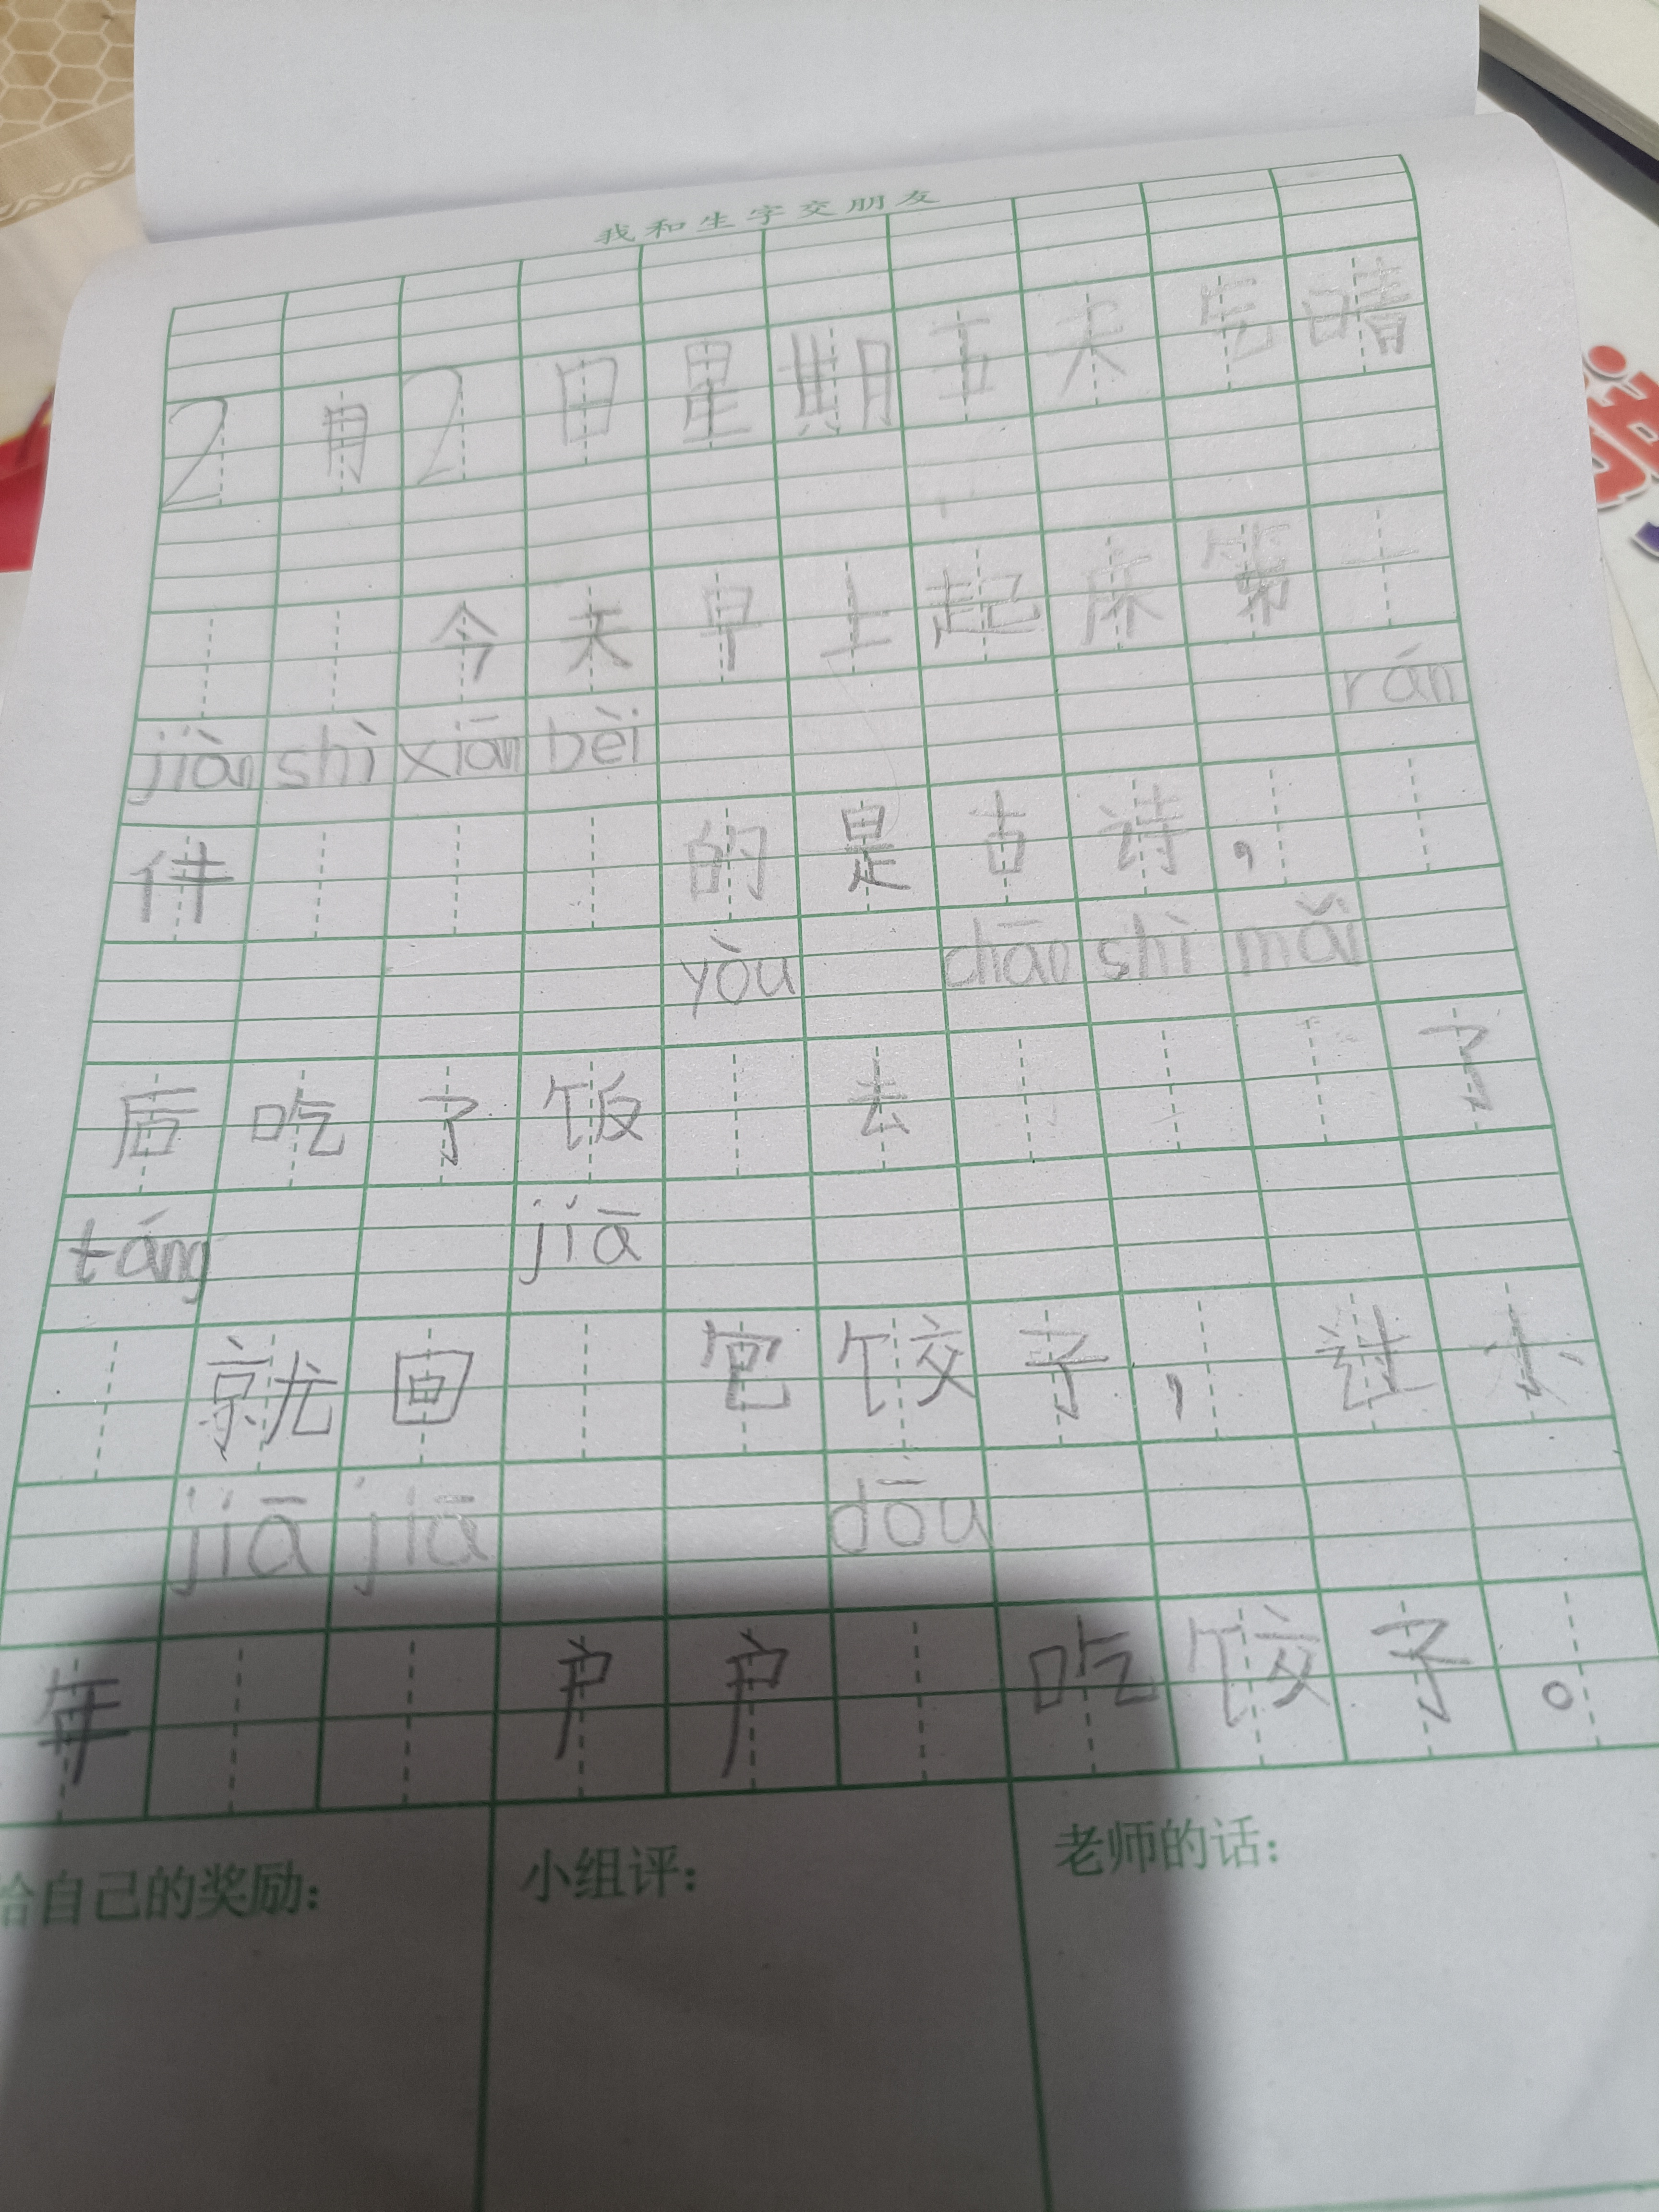 我和生字交朋友
2月2日星期五天气晴
今天早上起床第一
jiàn shì xiān bèi rán
件的是古诗，
yòu chāo shì mǎi
后吃了饭去了
táng jiā
就回包饺子，过大
jiā jiā dōu
年户户吃饺子。
给自己的奖励：
小组评：
老师的话：